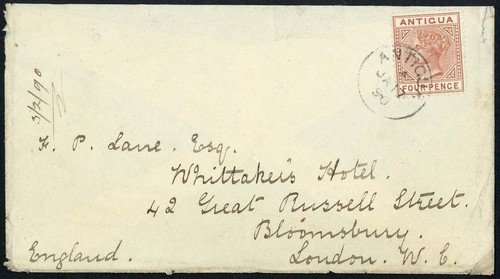 ANTIGUA
FOUR PENCE
ANTIGU
JA 17
90
3/2/90
F. P. Lane. Esq.
Whittaker's Hotel.
42 Great Russell Street.
Bloomsbury.
England. London. W. C.